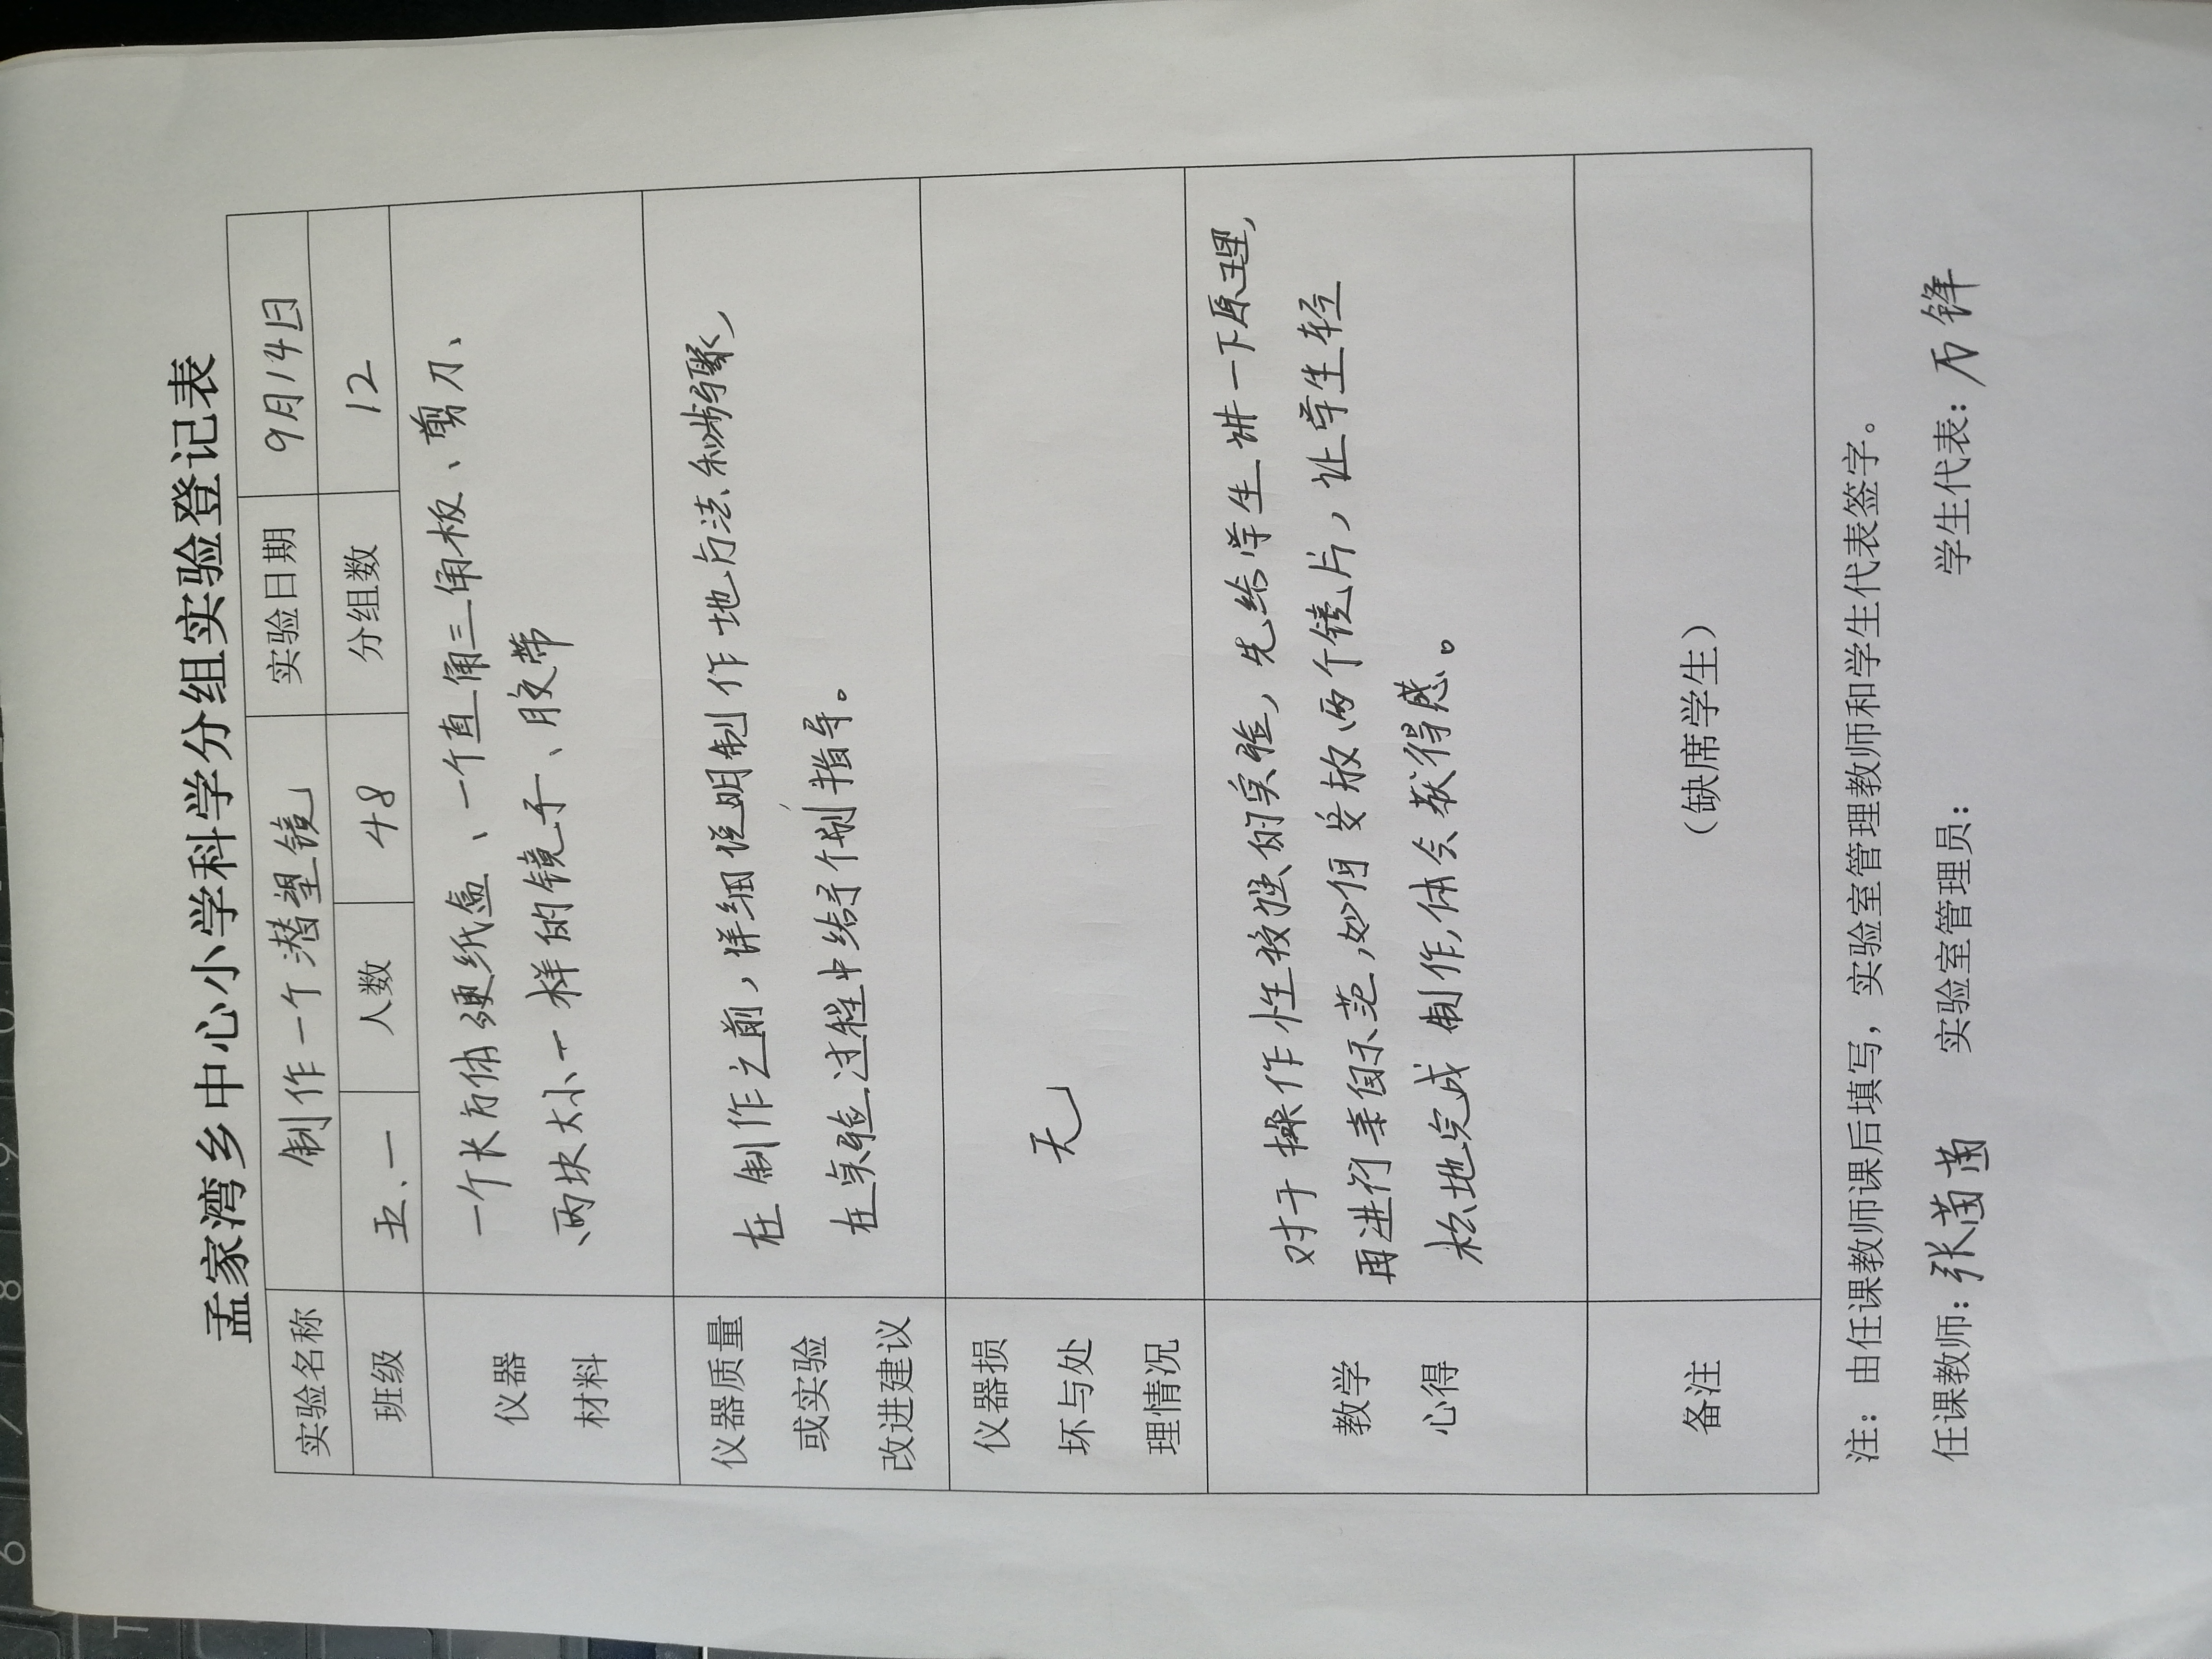 孟家湾乡中心小学科学分组实验登记表
实验名称 制作一个潜望镜 实验日期 9月14日
班级 五、一 人数 48 分组数 12
仪器
材料
一个长方体硬纸盒、一个直角三角板、剪刀、
、两块大小一样的镜子、胶带
仪器质量
或实验
改进建议
在制作之前,详细说明制作地方法和步骤,
在实验过程中给予个别指导。
仪器损
坏与处
理情况
无
教学
心得
对于操作性较强的实验,先给学生讲一下原理,
再进行亲自示范,如何安放两个镜片,让学生轻
松地完成制作,体会获得感。
备注
(缺席学生)
注:由任课教师课后填写,实验室管理教师和学生代表签字。
任课教师:张茵茵 实验室管理员: 学生代表: